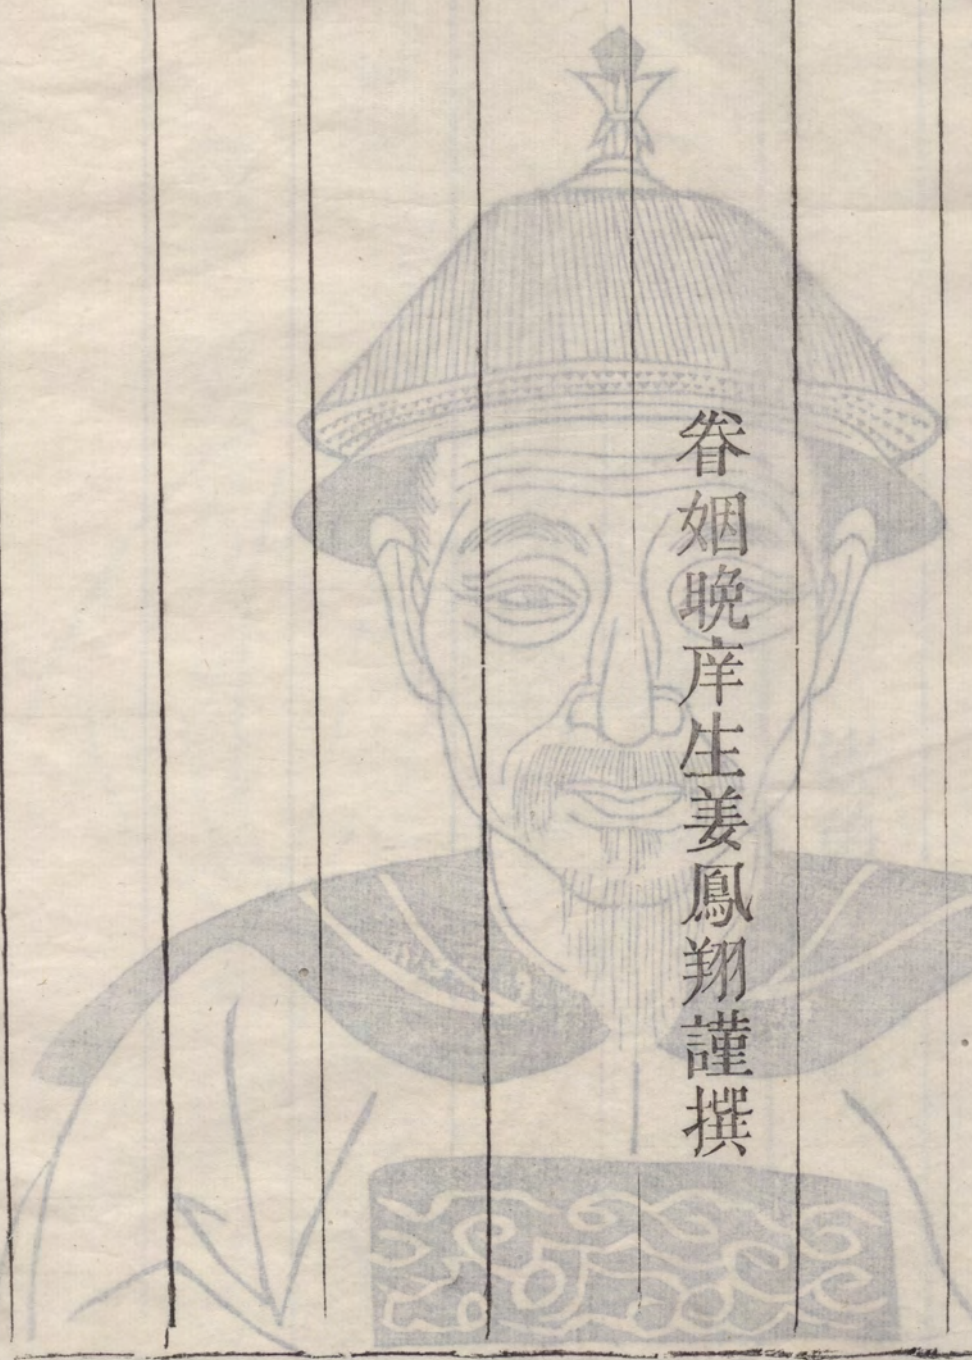 眷姻晚庠生姜鳳翔謹撰